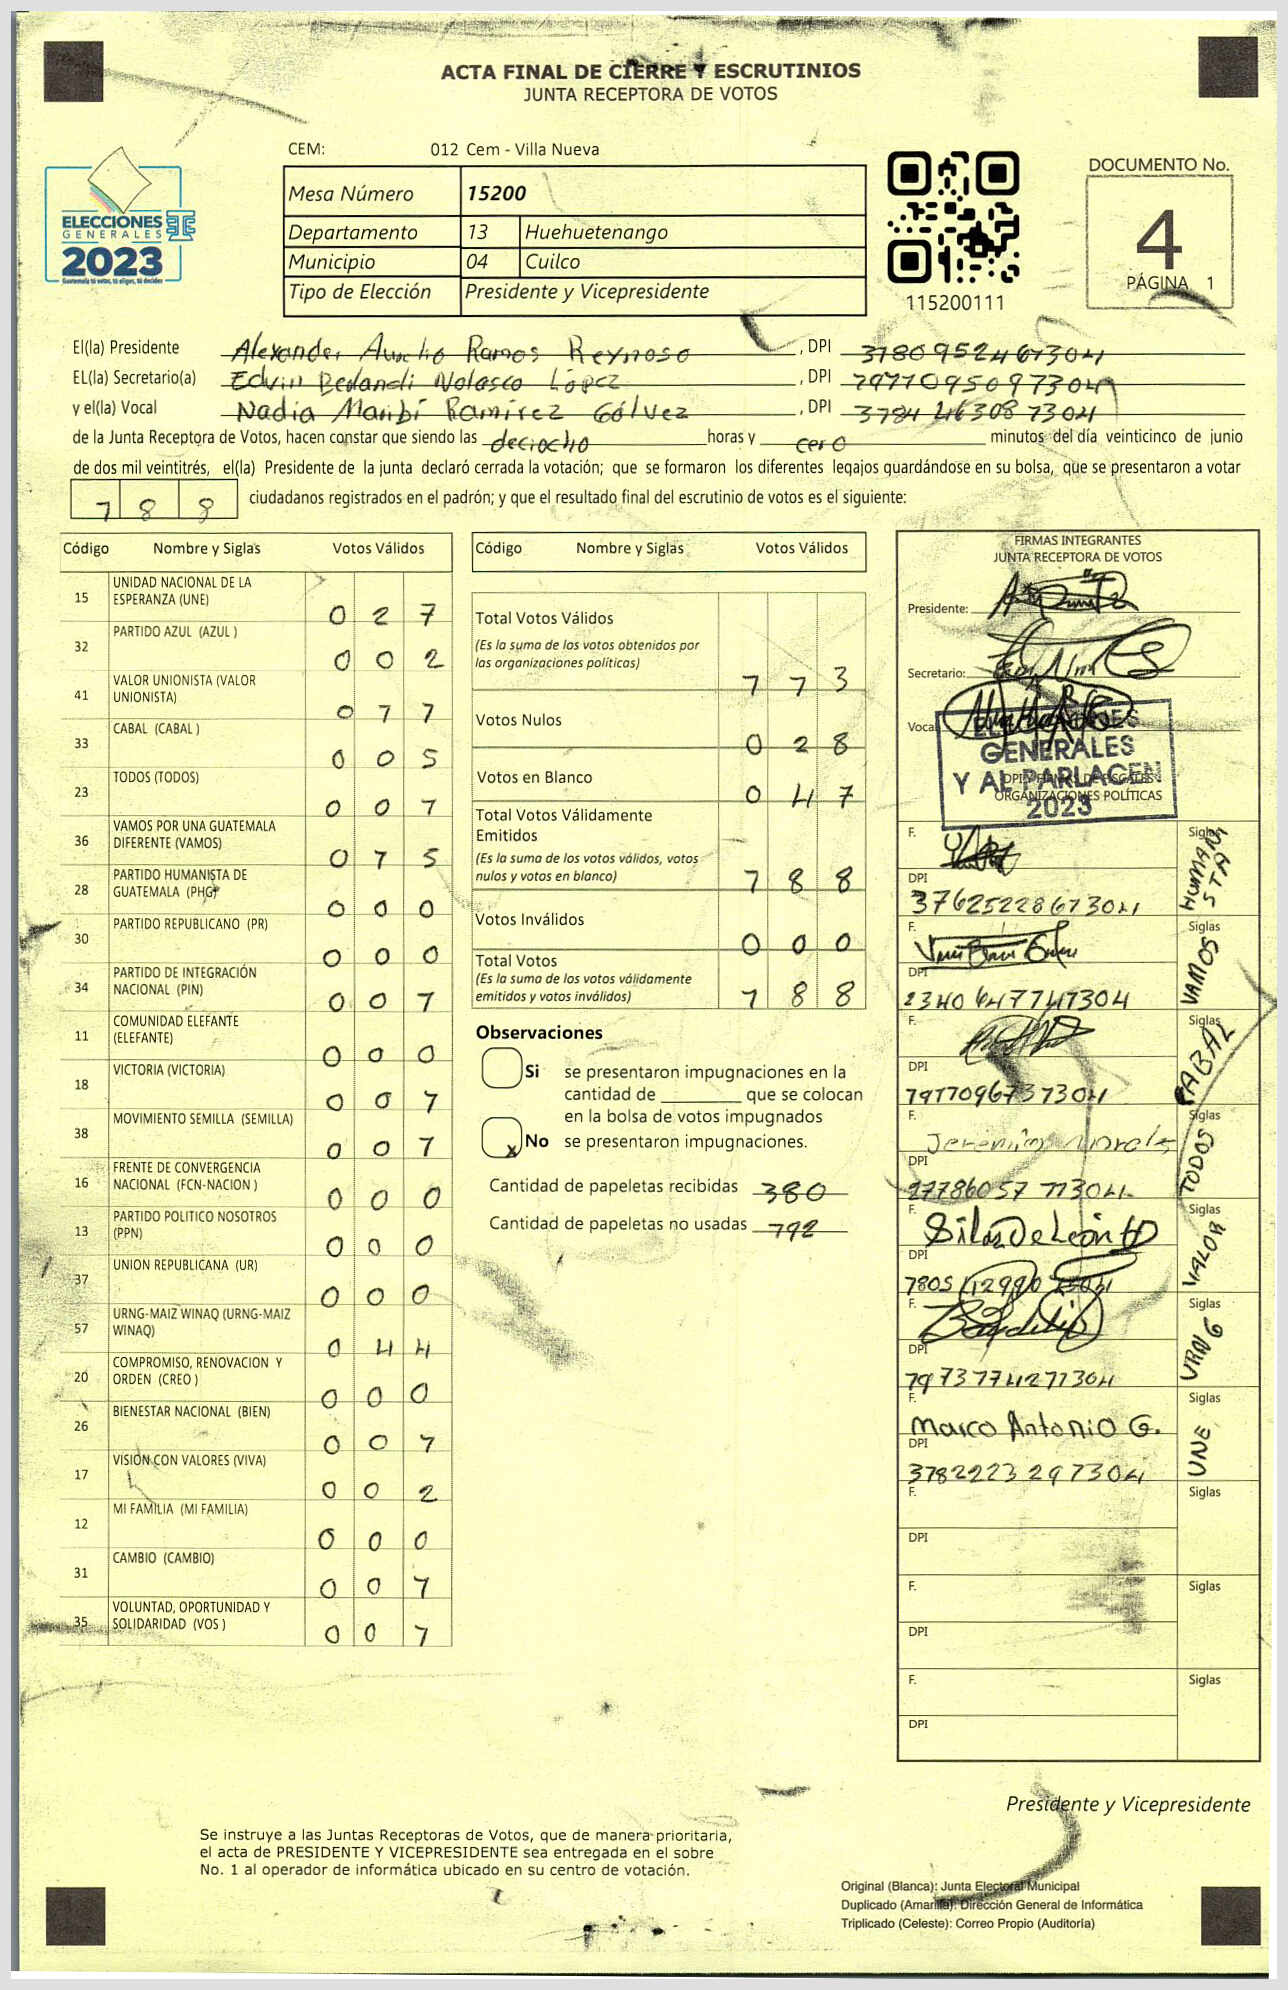 ACTA FINAL DE CIERRE Y ESCRUTINIOS
JUNTA RECEPTORA DE VOTOS
CEM: 012 Cem - Villa Nueva
DOCUMENTO No.
4
PÁGINA 1
ELECCIONES
GENERALES
2023
Mesa Número 15200
Departamento 13 Huehuetenango
Municipio 04 Cuilco
Tipo de Elección Presidente y Vicepresidente
115200111
El(la) Presidente Alexander Ramos Reynoso, DPI
EL(la) Secretario(a) Edvin Nolasco López, DPI
y el(la) Vocal Nadia Maribí Ramírez Gálvez, DPI
de la Junta Receptora de Votos, hacen constar que siendo las deciocho horas y cero minutos del día veinticinco de junio
de dos mil veintitrés, el(la) Presidente de la junta declaró cerrada la votación; que se formaron los diferentes legajos guardándose en su bolsa, que se presentaron a votar
788 ciudadanos registrados en el padrón; y que el resultado final del escrutinio de votos es el siguiente:
Código Nombre y Siglas Votos Válidos
15 UNIDAD NACIONAL DE LA ESPERANZA (UNE) 027
32 PARTIDO AZUL (AZUL ) 002
41 VALOR UNIONISTA (VALOR UNIONISTA) 077
33 CABAL (CABAL ) 005
23 TODOS (TODOS) 007
36 VAMOS POR UNA GUATEMALA DIFERENTE (VAMOS) 075
28 PARTIDO HUMANISTA DE GUATEMALA (PHG) 000
30 PARTIDO REPUBLICANO (PR) 000
34 PARTIDO DE INTEGRACIÓN NACIONAL (PIN) 007
11 COMUNIDAD ELEFANTE (ELEFANTE) 000
18 VICTORIA (VICTORIA) 007
38 MOVIMIENTO SEMILLA (SEMILLA) 007
16 FRENTE DE CONVERGENCIA NACIONAL (FCN-NACION ) 000
13 PARTIDO POLITICO NOSOTROS (PPN) 000
37 UNION REPUBLICANA (UR) 000
57 URNG-MAIZ WINAQ (URNG-MAIZ WINAQ) 044
20 COMPROMISO, RENOVACION Y ORDEN (CREO ) 000
26 BIENESTAR NACIONAL (BIEN) 007
17 VISIÓN CON VALORES (VIVA) 002
12 MI FAMILIA (MI FAMILIA) 000
31 CAMBIO (CAMBIO) 007
35 VOLUNTAD, OPORTUNIDAD Y SOLIDARIDAD (VOS ) 007
Código Nombre y Siglas Votos Válidos
Total Votos Válidos
(Es la suma de los votos obtenidos por
las organizaciones políticas)
773
Votos Nulos 028
Votos en Blanco 047
Total Votos Válidamente
Emitidos
(Es la suma de los votos válidos, votos
nulos y votos en blanco) 788
Votos Inválidos 000
Total Votos
(Es la suma de los votos válidamente
emitidos y votos inválidos) 788
Observaciones
Si se presentaron impugnaciones en la
cantidad de ________ que se colocan
en la bolsa de votos impugnados
x No se presentaron impugnaciones.
Cantidad de papeletas recibidas 380
Cantidad de papeletas no usadas 792
FIRMAS INTEGRANTES
JUNTA RECEPTORA DE VOTOS
Presidente:
Secretario:
Vocal
ELECCIONES
GENERALES
Y AL PARLACEN
2023
DPI Y FIRMAS DE FISCALES
ORGANIZACIONES POLÍTICAS
F. Siglas HUMANISTA
DPI
F. Siglas VAMOS
DPI
F. Siglas CABAL
DPI
F. Jeremías Morales Siglas TODOS
DPI
F. Silas De León Siglas VALOR
DPI
F. Siglas URNG
DPI
F. Marco Antonio G. Siglas UNE
DPI 3782223297304
F. Siglas
DPI
F. Siglas
DPI
F. Siglas
DPI
Presidente y Vicepresidente
Se instruye a las Juntas Receptoras de Votos, que de manera prioritaria,
el acta de PRESIDENTE Y VICEPRESIDENTE sea entregada en el sobre
No. 1 al operador de informática ubicado en su centro de votación.
Original (Blanca): Junta Electoral Municipal
Duplicado (Amarilla): Dirección General de Informática
Triplicado (Celeste): Correo Propio (Auditoría)